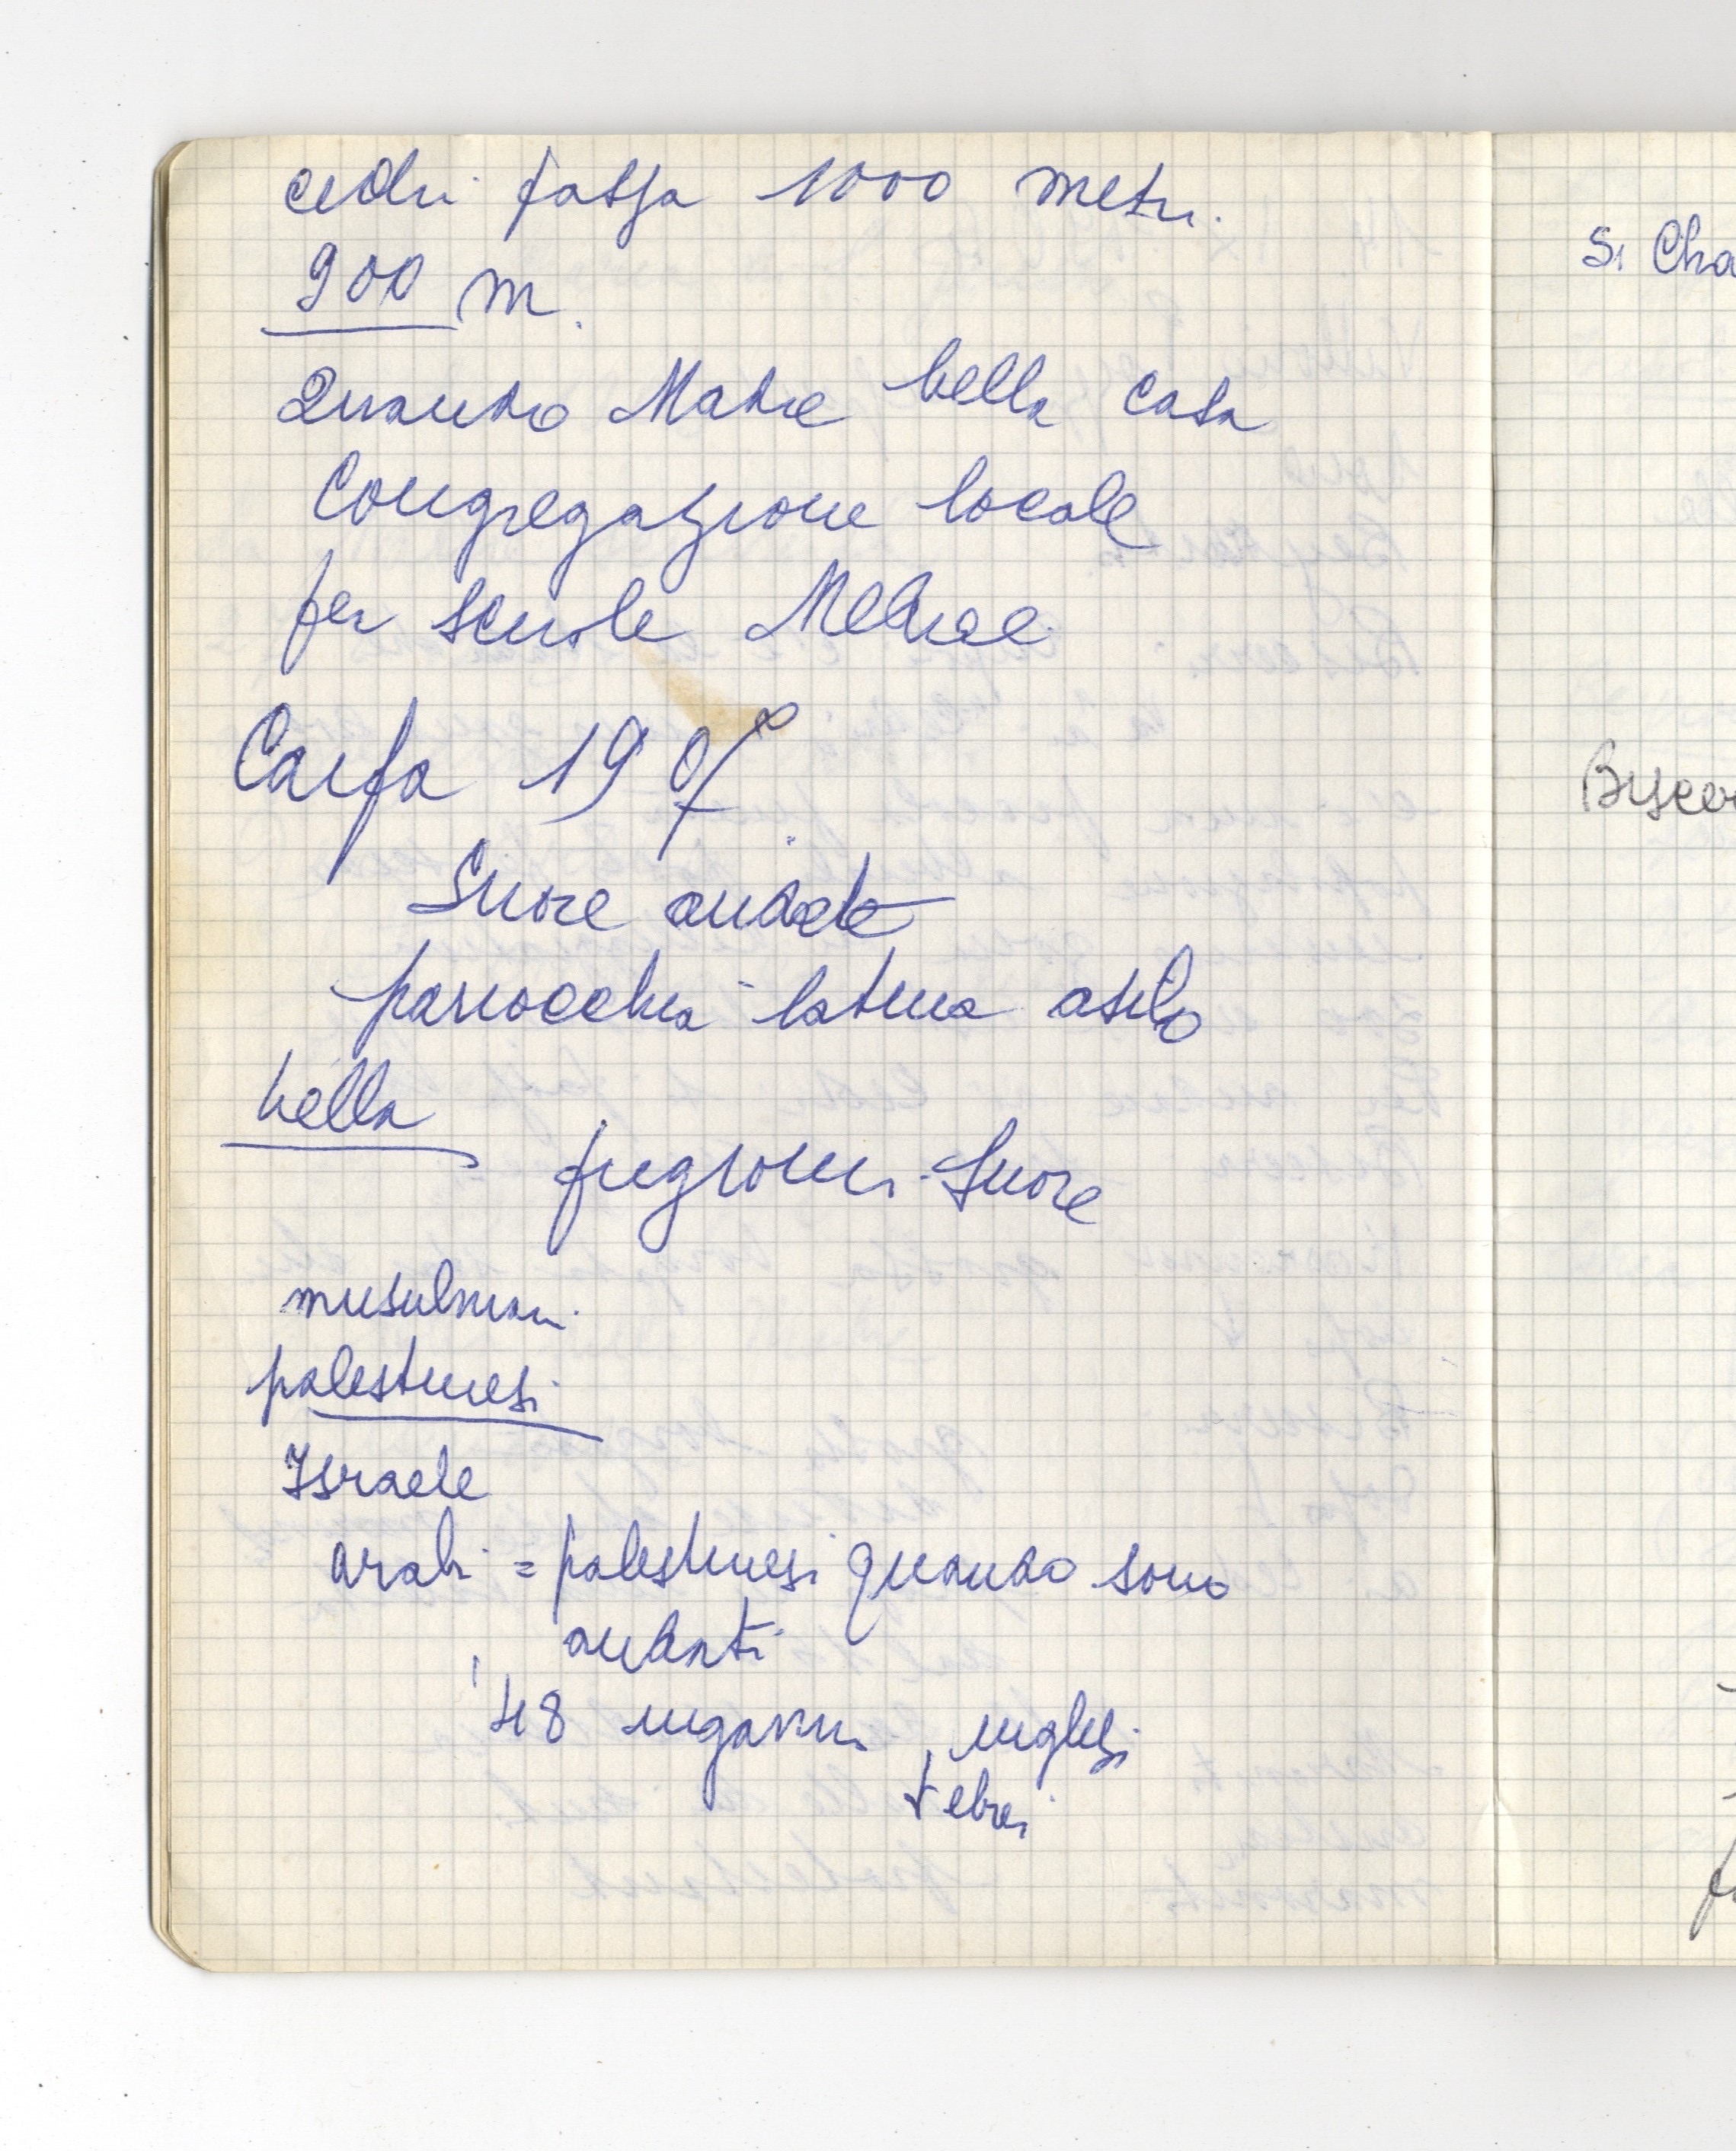 cedri passa 1000 metri.
900 m.
Quando Madre bella casa
Congregazione locale
per scuole Medree
Caifa 19
Suore andate
parrocchia latina asilo
bella
prigioni Suore
musulmani
palestinesi
Israele
arabi = palestinesi quando sono
andati
'48 inganni inglesi
+ ebrei
S. Cha
Biscer